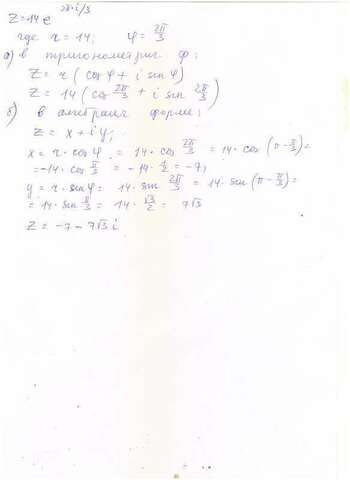 z=14e^{2π·i/3}
где r=14; φ=2π/3
а) в тригонометрич. ф;
z = r(cos φ + i sin φ)
z = 14(cos 2π/3 + i sin 2π/3)
б) в алгебраич форме;
z = x + iy;
x = r·cos φ = 14·cos 2π/3 = 14·cos(π-π/3)=
=-14·cos π/3 = -14·1/2 = -7;
y = r·sin φ = 14·sin 2π/3 = 14·sin(π-π/3)=
= 14·sin π/3 = 14·√3/2 = 7√3
z = -7 - 7√3 i